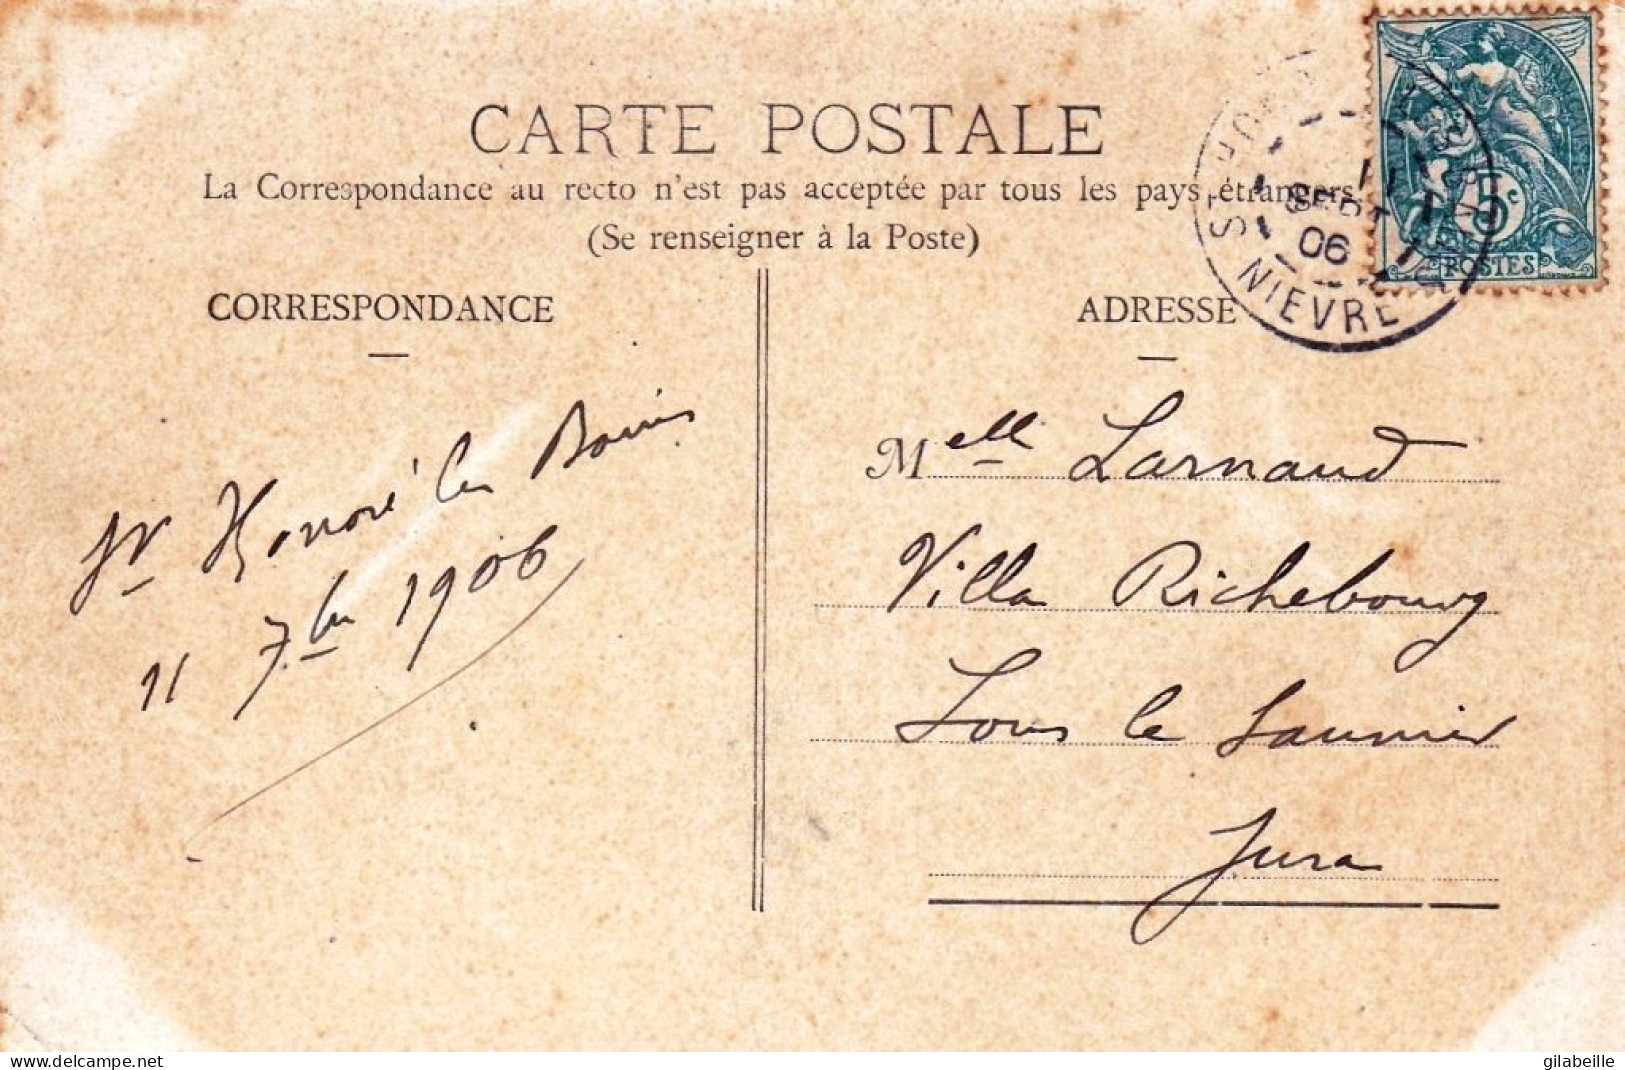 CARTE POSTALE
La Correspondance au recto n'est pas acceptée par tous les pays étrangers
(Se renseigner à la Poste)
CORRESPONDANCE
St Honoré les Bains
11 7bre 1906
ADRESSE
Melle Larnaud
Villa Richebourg
Lons le Saunier
Jura
11
SEPT
06
NIEVRE
5c
POSTES
www.delcampe.net
gilabeille